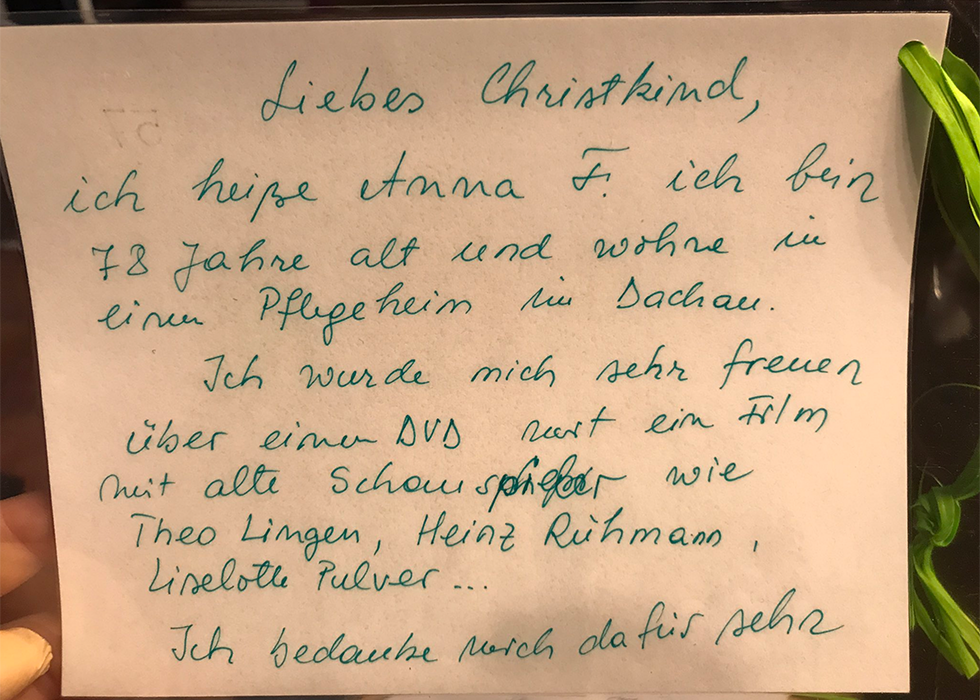 Liebes Christkind,
ich heiße Anna F. ich bein
78 Jahre alt und wohne in
einem Pflegeheim in Dachau.
Ich wurde mich sehr freuen
über einen DVD mit ein Film
mit alte Schauspieler wie
Theo Lingen, Heinz Rühmann,
Liselotte Pulver...
Ich bedanke mich dafür sehr
57